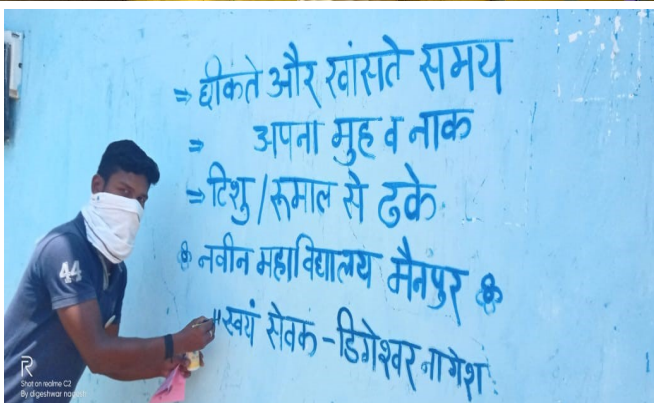 ⇒ छीकते और खांसते समय
⇒ अपना मुह व नाक
⇒ टिशु / रूमाल से ढके
नवीन महाविद्यालय मैनपुर
"स्वयं सेवक - डिगेश्वर नागेश
44
R
Shot on realme C2
By digeshwar nagesh